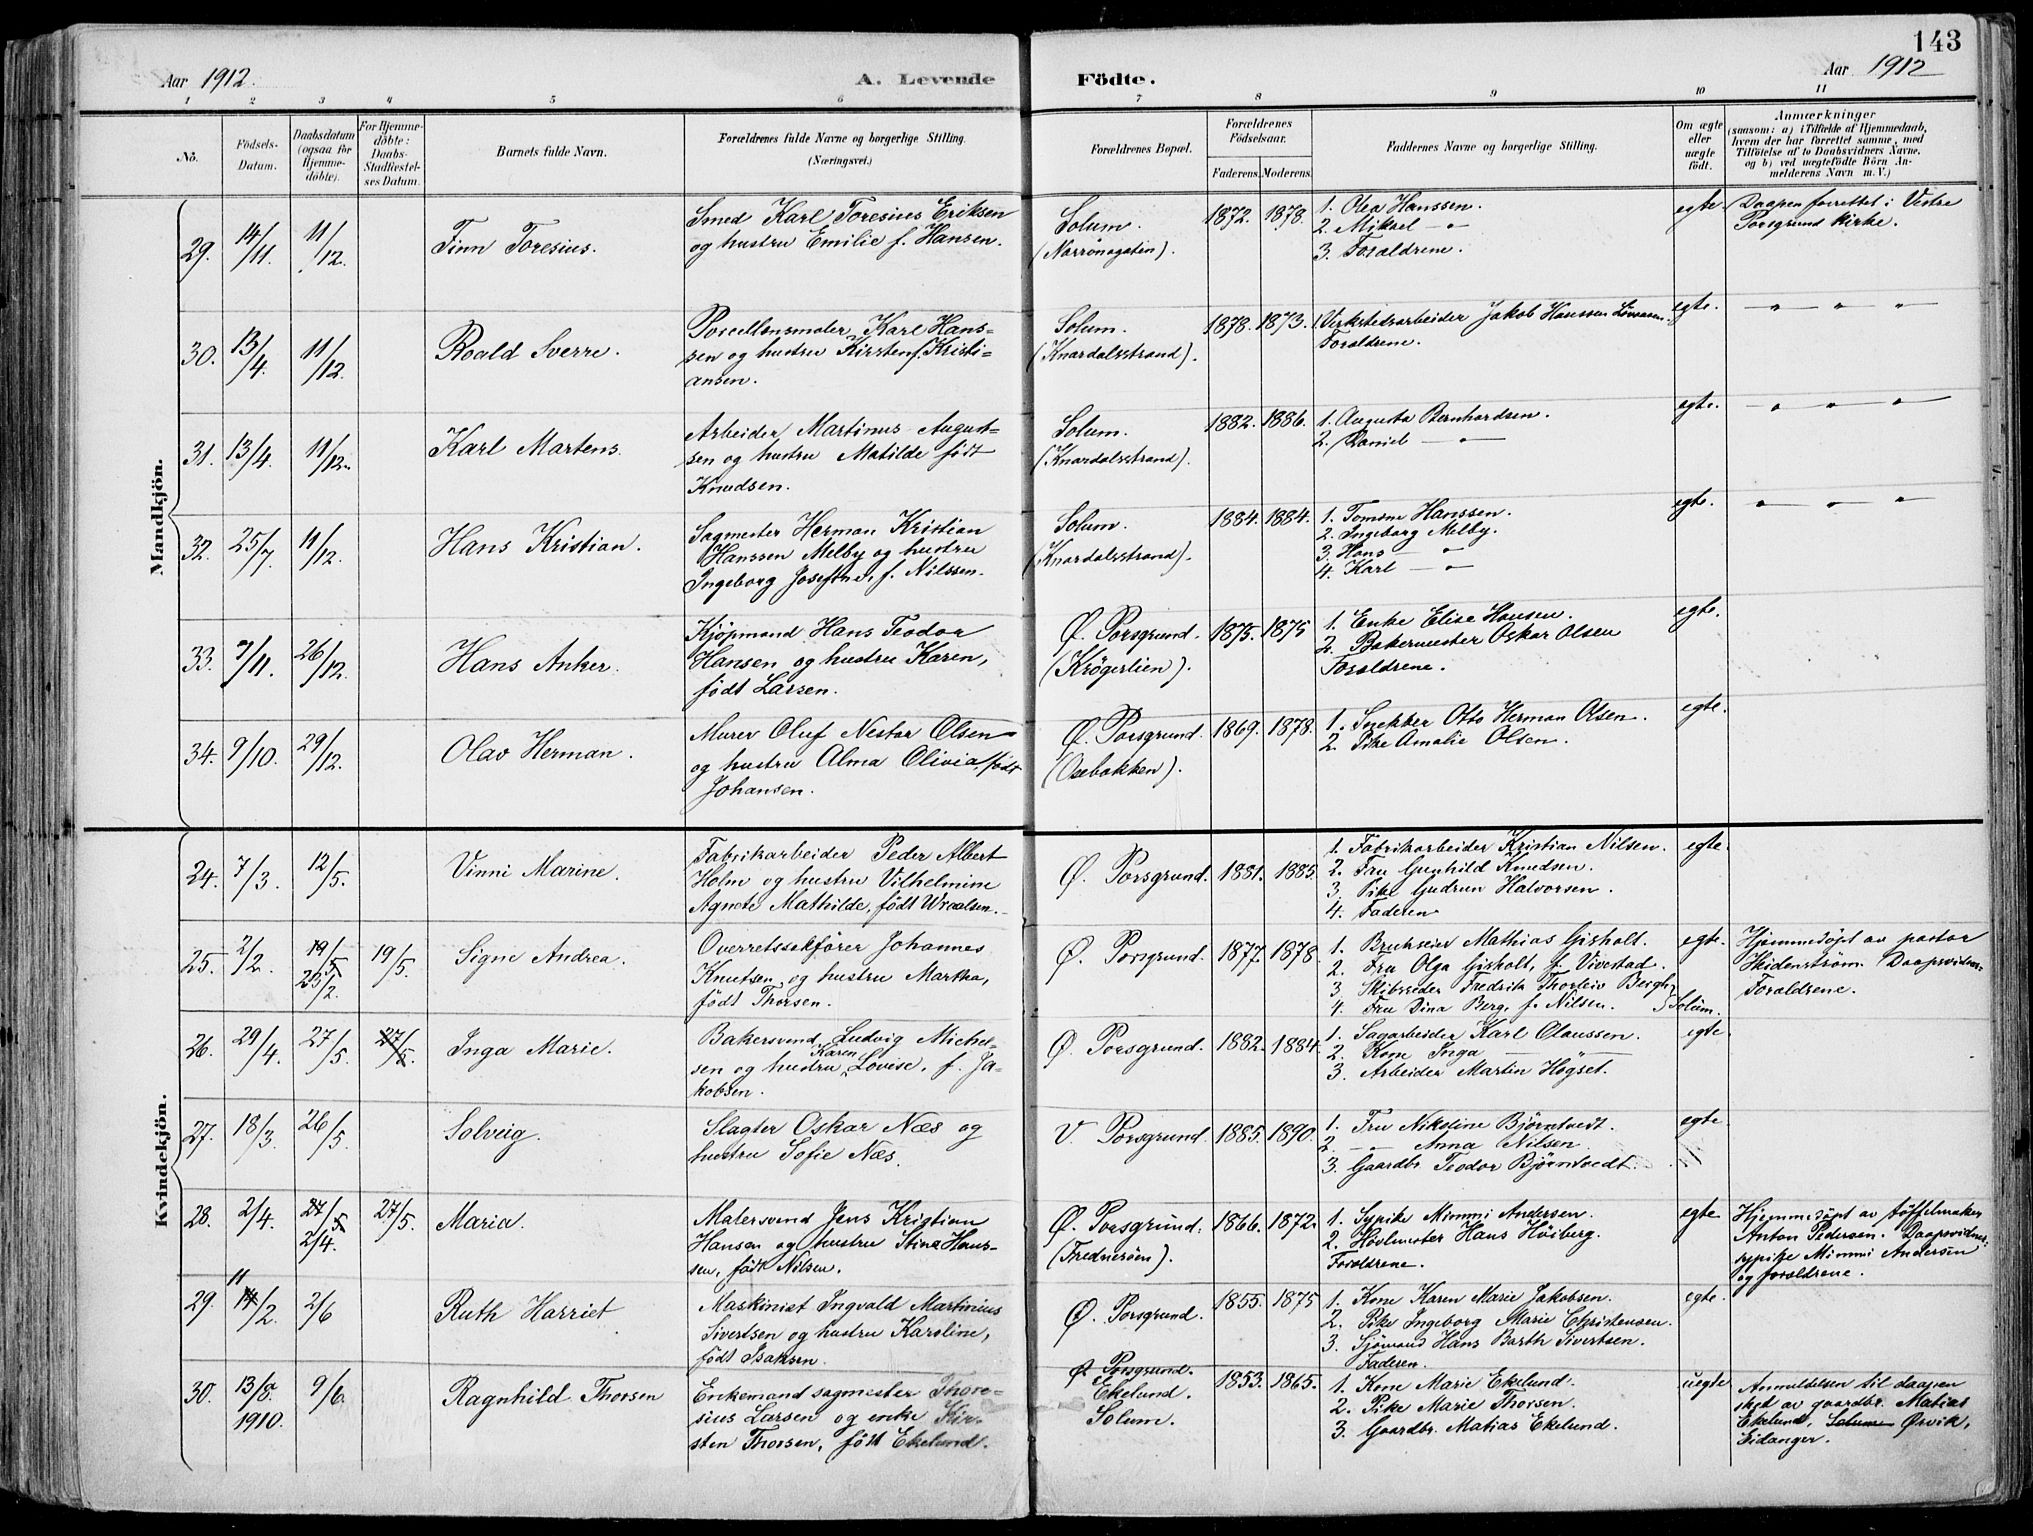 143
Aar 1912.
A. Levende
Födte.
Aar 1912
1 2 3 4 5 6 7 8 9 10 11
No.
Födsels-
Datum.
Daabsdatum
(ogsaa for
Hjemme-
döbte).
For Hjemme-
döbte:
Daabs-
Stadfæstel-
ses Datum.
Barnets fulde Navn.
Forældrenes fulde Navne og borgerlige Stilling.
(Næringsvei.)
Forældrenes Bopæl.
Forældrenes
Födselsaar.
Faderens. Moderens.
Faddernes Navne og borgerlige Stilling.
Om ægte
eller
uægte
födt.
Anmærkninger
(saasom: a) i Tilfælde af Hjemmedaab,
hvem der har forrettet samme, med
Tilföielse af to Daabsvidners Navne,
og b) ved uegtefödte Börn An-
melderens Navn m. V.)
Mandkjön.
29. 14/11. 11/12. Finn Toresius.
Smed Karl Toresius Eriksen
og hustru Emilie f. Hansen.
Solum.
(Norrönagaten).
1872. 1878.
1. Olea Hanssen.
2. Mikael — " —
3. Forældrene.
egte.
Daapen forrettet i Vestre
Porsgrund kirke.
30. 13/4. 11/12. Roald Sverre.
Porcellensmaler Karl Hans-
sen og hustru Kirsten f. Kristi-
ansen.
Solum.
(Knardalsstrand).
1878. 1873.
1. Verkstedsarbeider Jakob Hanssen
Forældrene.
egte. — " — " — " —
31. 13/4. 11/12. Karl Martens.
Arbeider Martinus August-
sen og hustru Matilde født
Knudsen.
Solum.
(Knardalsstrand).
1882. 1886.
1. Augusta Bernhardsen.
2. Daniel — " —
egte. — " — " — " —
32. 25/7. 11/12. Hans Kristian.
Sagmester Herman Kristian
Hanssen Melby og hustru
Ingeborg Josefine, f. Nilssen.
Solum.
(Knardalsstrand).
1884. 1884.
1. Tomine Hanssen.
2. Ingeborg Melby.
3. Hans — " —
4. Karl — " —
egte. — " — " — " —
33. 7/11. 26/12. Hans Anker.
Kjøpmand Hans Teodor
Hansen og hustru Karen,
født Larsen.
Ø. Porsgrund.
(Krögerlien).
1875. 1875
1. Enke Elise Hansen.
2. Bakermester Oskar Olsen
Forældrene.
egte.
34. 9/10. 29/12. Olav Herman.
Murer Oluf Nestor Olsen
og hustru Alma Olivia, født
Johansen.
Ø. Porsgrund.
(Osebakken).
1869. 1878.
1. Snekker Otto Herman Olsen.
2. Pike Amalie Olsen.
egte.
Kvindekjön.
24. 7/3. 12/5. Vinni Marine.
Fabrikarbeider Peder Albert
Holm og hustru Vilhelmine
Agnete Mathilde, født Wraalsen.
Ø. Porsgrund.
1881. 1885.
1. Fabrikarbeider Kristian Nilsen.
2. Fru Gunhild Knudsen.
3. Pike Gudrun Halvorsen.
4. Faderen
egte.
25. 2/2. 19/5 23/2. 19/5. Signe Andrea.
Overretssakfører Johannes
Knutsen og hustru Martha,
født Thorsen.
Ø. Porsgrund.
1877. 1878.
1. Brukseier Mathias Gisholt.
2. Fru Olga Gisholt, f. Vivestad.
3. Skibsreder Fredrik Thorleiv Bergh
4. Fru Dina Berg, f. Nilsen. } Solum.
egte.
Hjemmedøpt av pastor
Skidenstrøm. Daapsvidner
Forældrene.
26. 29/4. 27/5. 27/5. Inga Marie.
Bakersvend Ludvig Michel-
sen og hustru Karen Lovise, f. Ja-
kobsen.
Ø. Porsgrund.
1882. 1884.
1. Sagarbeider Karl Claussen.
2. Kone Inga —
3. Arbeider Martin Høgset.
egte
27. 18/3. 26/5. Solveig.
Slagter Oskar Næs og
hustru Sofie Næs.
V. Porsgrund.
1885. 1890.
1. Fru Nikoline Bjørntvedt.
2. — " — Anna Nilsen.
3. Gaardbr. Teodor Bjørntvedt.
egte
28. 2/4. 27/5 2/4. 27/5. Maria.
Malersvend Jens Kristian
Hansen og hustru Stina Hans-
sen, født Nilsen.
Ø. Porsgrund.
(Frednesøen).
1866. 1872.
1. Sypike Mimmi Andersen.
2. Høvlmester Hans Høiberg.
Forældrene.
egte
Hjemmedøpt av tøffelmaker
Anton Pedersen. Daapsvidner:
sypike Mimmi Andersen
og forældrene.
29. 11 14/2. 2/6 Ruth Harriet
Maskinist Ingvald Martinius
Sivertsen og hustru Karoline,
født Isaksen.
Ø. Porsgrund.
1855. 1875
1. Kone Karen Marie Jakobsen.
2. Pike Ingeborg Marie Christensen.
3. Sjømand Hans Barth Sivertsen.
Faderen.
egte.
30. 13/8. 1910. 9/6. Ragnhild Thorsen
Enkemand sagmester Thore-
sius Larsen og enke Kir-
sten Thorsen, født Ekelund.
Ø Porsgrund.
Ekelund.
Solum.
1853. 1865.
1. Kone Marie Ekelund.
2. Pike Marie Thorsen.
3. Gaardbr. Matias Ekelund.
uegte
Anmeldelsen til daapen
sket av gaardbr. Matias
Ekelund, Solum Ørvik,
Eidanger.